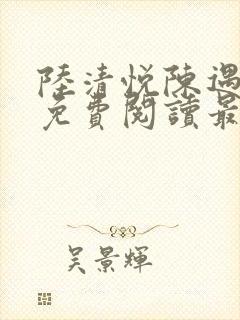 陸清悅陳遇
免費閱讀最
吴景輝